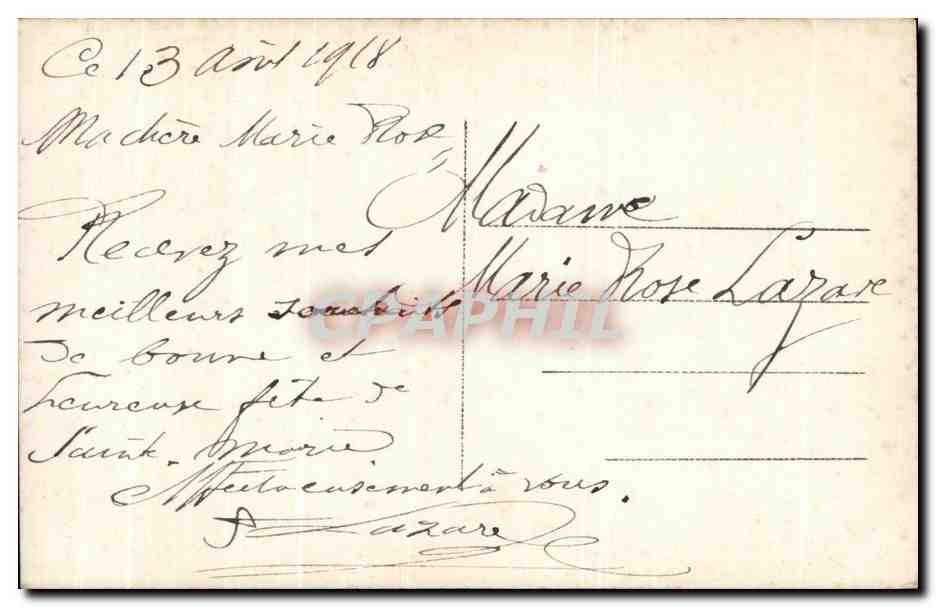 Ce 13 Août 1918
Ma chère Marie Rose,
Recevez mes
meilleurs souhaits
de bonne et
heureuse fête de
Sainte. Marie
Affectueusement à vous.
Lazare
Madame
Marie Rose Lazare
CPAPHIL